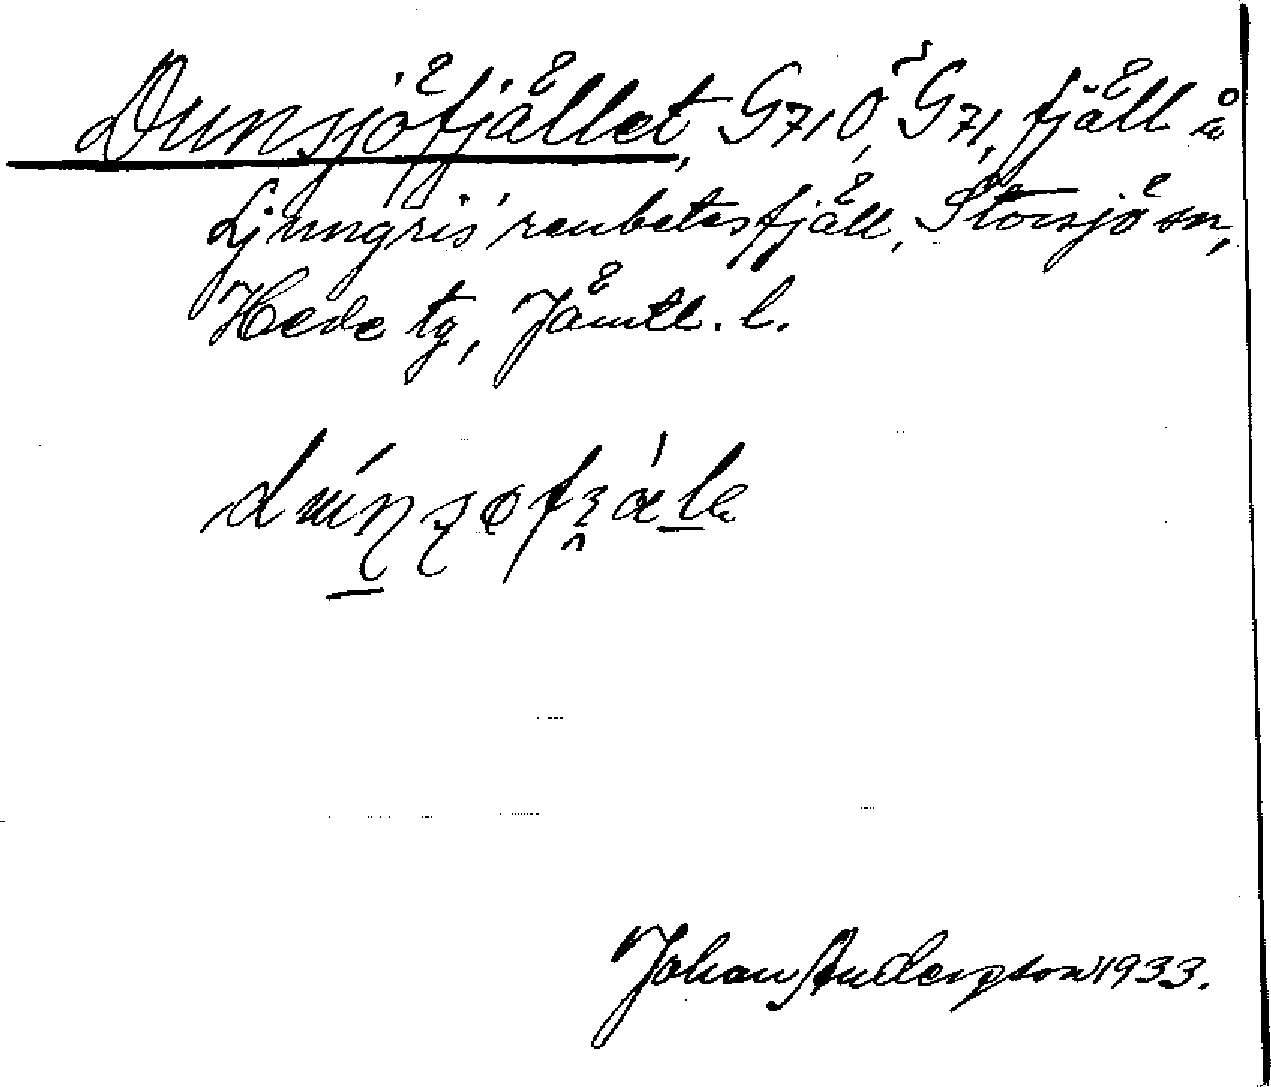 Dunsjöfjället, G71Ö, G71, fjäll å
Ljungris' renbetesfjäll, Storsjö sn,
Hede tg, Jämtl. l.
Johan Anderzson 1933.